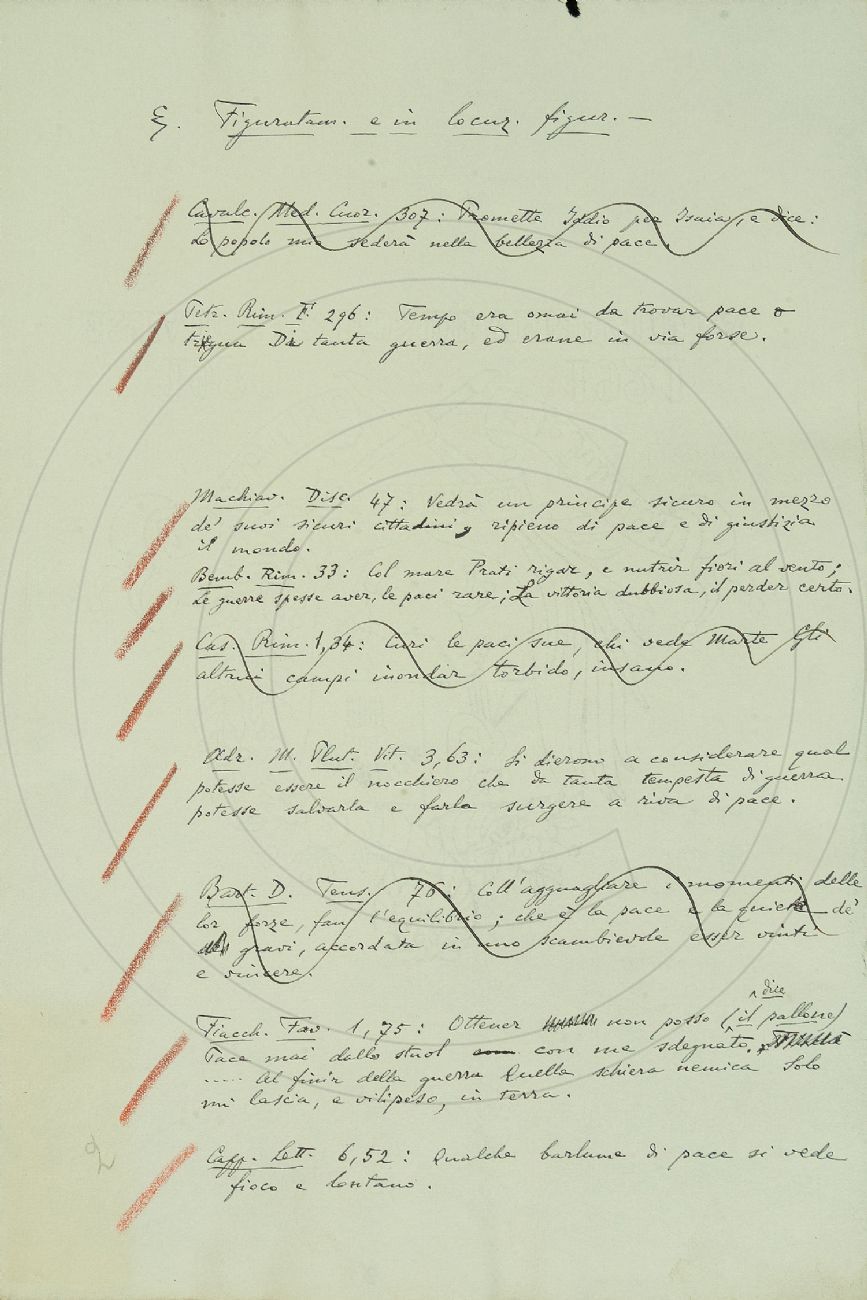 §. Figuratam. e in locuz. figur. —
Cavalc. Med. Cuor. 307: Promette Iddio per Isaia, e dice:
Lo popolo mio sederà nella bellezza di pace.
Petr. Rim. 1. 296: Tempo era omai da trovar pace o
triegua Di tanta guerra, ed erane in via forse.
Machiav. Disc. 47: Vedrà un principe sicuro in mezzo
de' suoi sicuri cittadini, ripieno di pace e di giustizia
il mondo.
Bemb. Rim. 33: Col mare Prati rigar, e nutrir fiori al vento;
Le guerre spesse aver, le paci rare; La vittoria dubbiosa, il perder certo.
Cas. Rim. 1, 34: Curi le paci sue, chi vede Marte Gli
altrui campi inondar torbido, insano.
Adr. M. Plut. Vit. 3, 63: Si dierono a considerare qual
potesse essere il nocchiero che da tanta tempesta di guerra
potesse salvarla e farla surgere a riva di pace.
Bart. D. Tens. 76: Coll'agguagliare i momenti delle
lor forze, fan l'equilibrio; che è la pace e la quiete de'
gravi, accordata in uno scambievole esser vinti
e vincere.
Fiacch. Fav. 1, 75: Ottener non posso (dice il pallone)
Pace mai dallo stuol con me sdegnato.
..... Al finir della guerra Quella schiera nemica Solo
mi lascia, e vilipeso, in terra.
Capp. Lett. 6, 52: Qualche barlume di pace si vede
fioco e lontano.
2